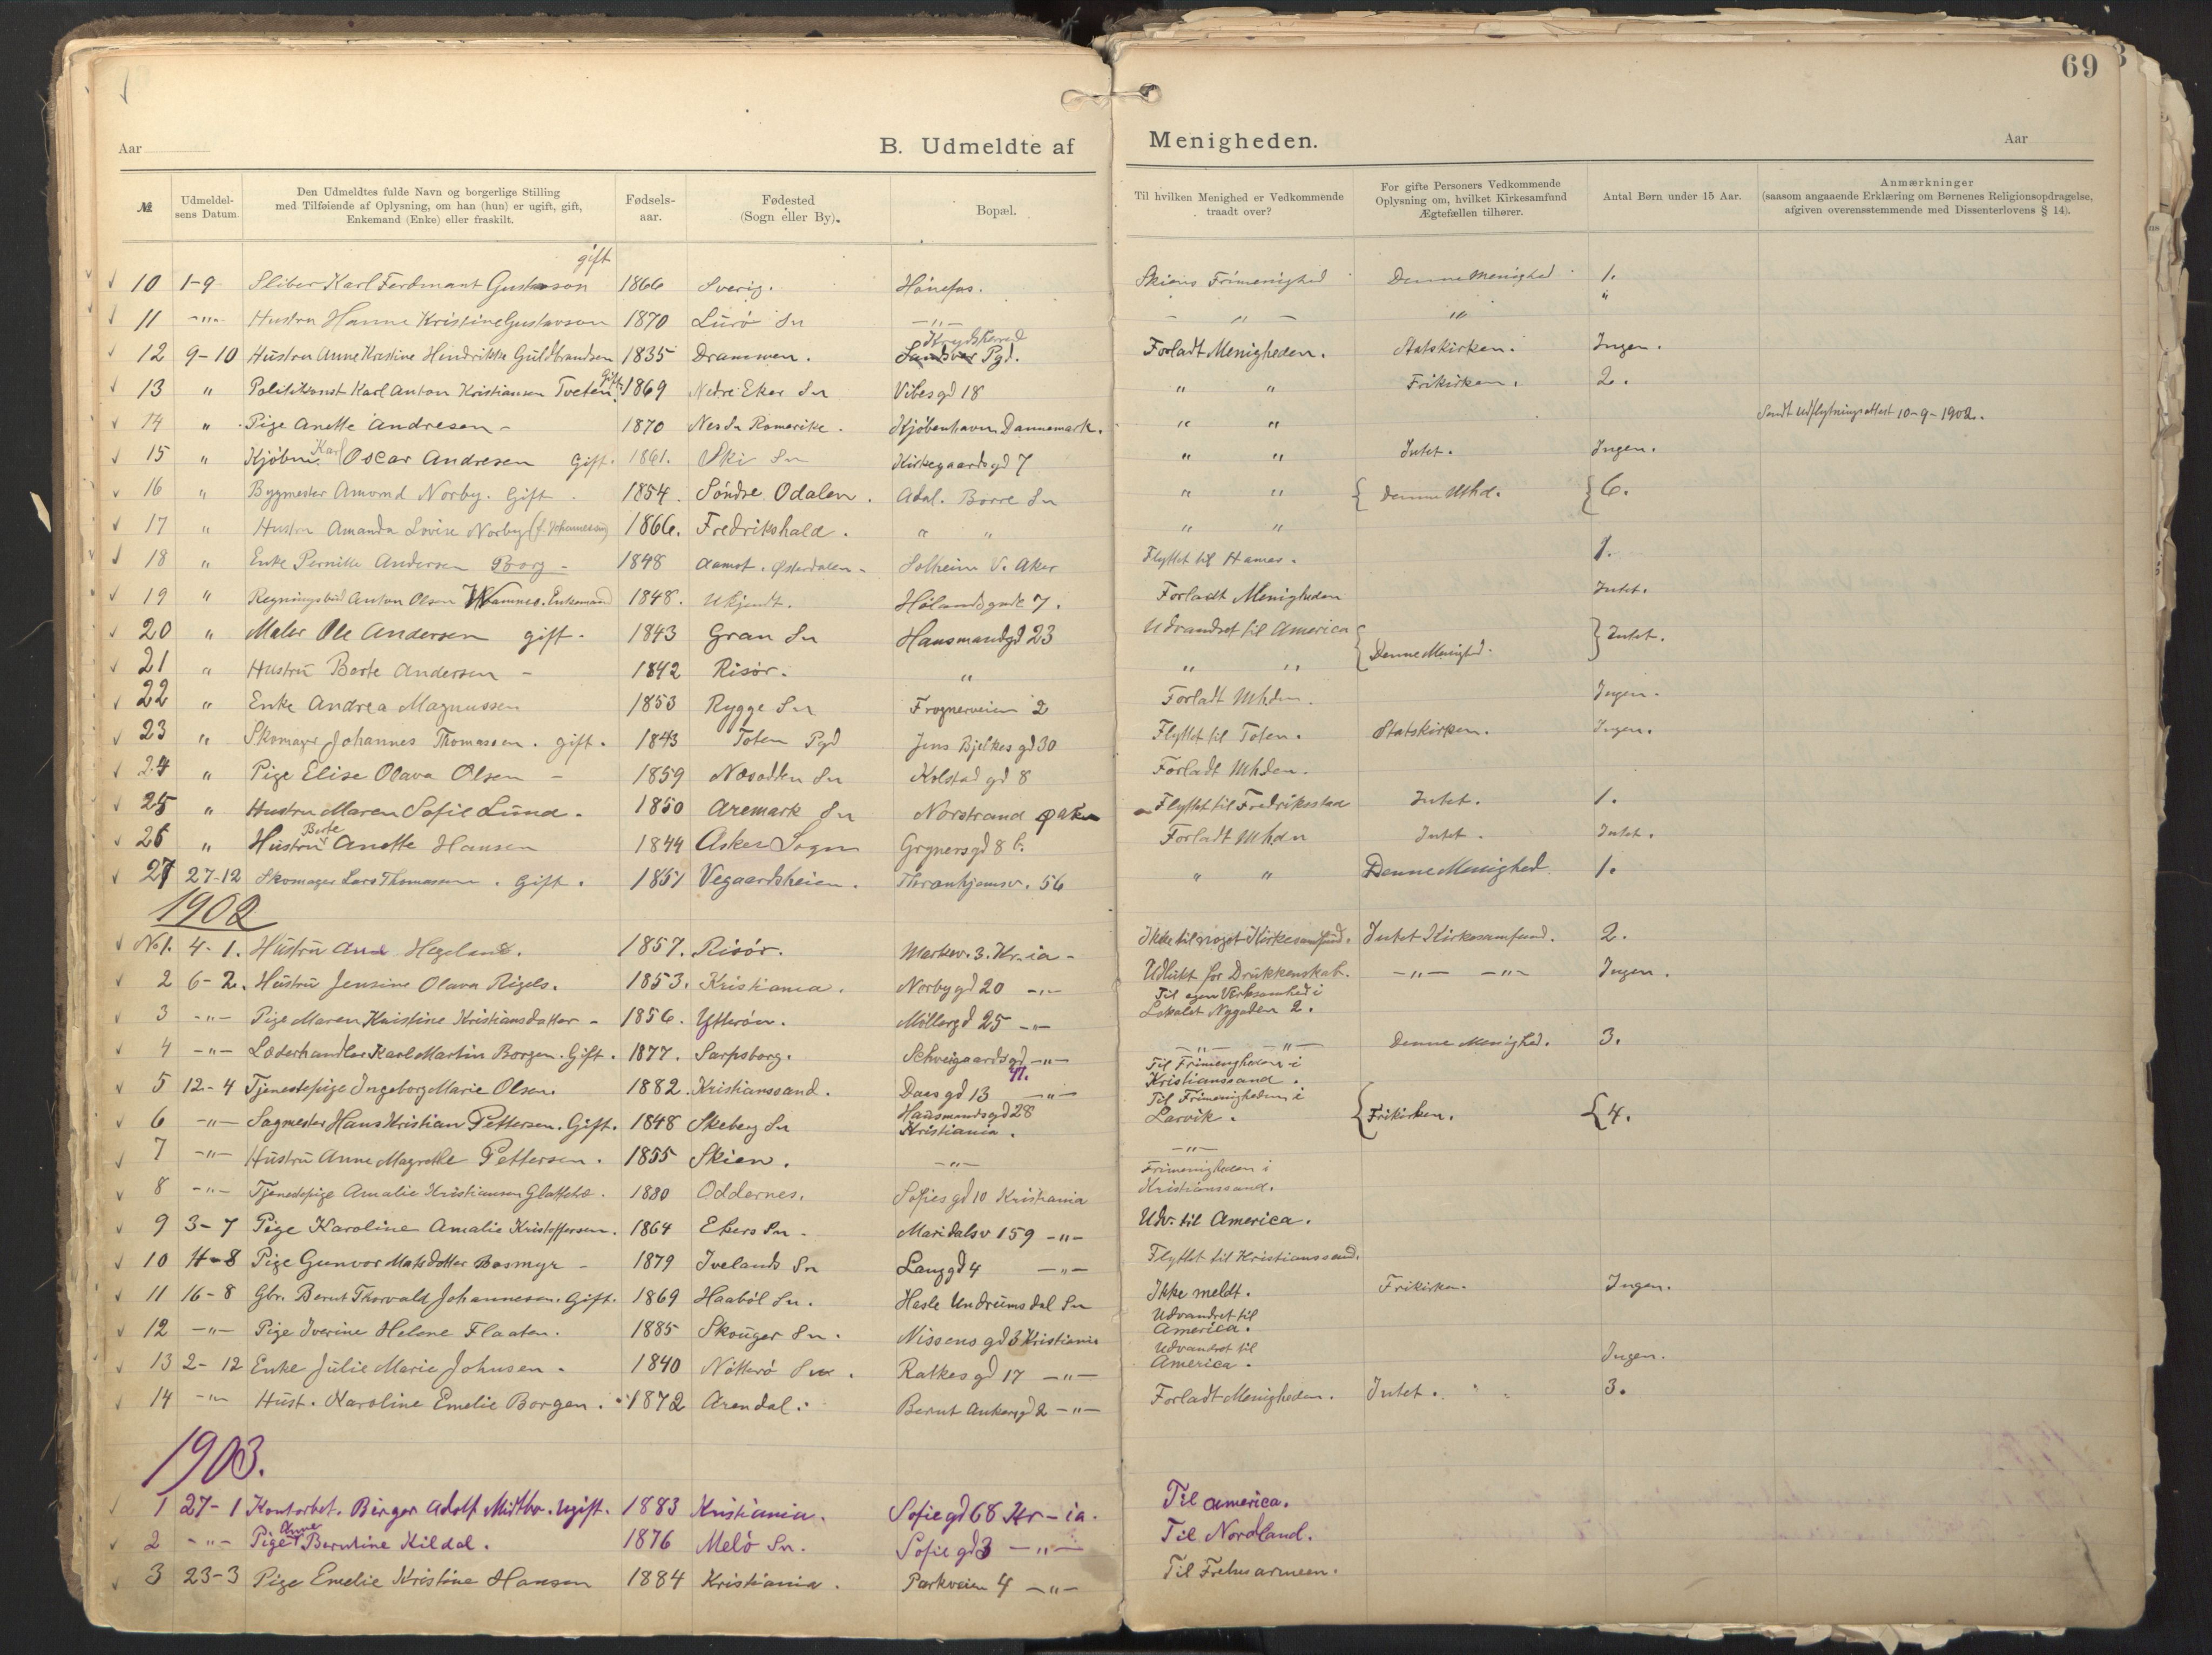 69
Aar
B. Udmeldte af Menigheden.
Aar
№
Udmeldel-
sens Datum.
Den Udmeldtes fulde Navn og borgerlige Stilling
med Tilføiende af Oplysning, om han (hun) er ugift, gift,
Enkemand (Enke) eller fraskilt.
Fødsels-
aar.
Fødested
(Sogn eller By).
Bopæl.
Til hvilken Menighed er Vedkommende
traadt over?
For gifte Personers Vedkommende
Oplysning om, hvilket Kirkesamfund
Ægtefællen tilhører.
Antal Børn under 15 Aar.
Anmærkninger
(saasom angaaende Erklæring om Børnenes Religionsopdragelse,
afgiven overensstemmende med Dissenterlovens § 14).
gift
10 1-9 Sliber Karl Ferdinant Gustavson 1866 Sverig. Hönefos. Skiens Frimenighed Denne Menighed 1.
11 -"- Hustru Hanne Kristine Gustavson 1870 Lurö Sn -"- - " - " "
12 9-10 Hustru Anne Kristine Hendrikke Guldbrandsen 1835 Drammen. Krydsherred Sandsvær Pgd. Forladt Menigheden. Statskirken. Ingen.
13 " Politikonst Karl Anton Kristiansen Tveten. Gift. 1869 Nedre Eker Sn Vibesgd 18 " " Frikirken. 2.
14 " Pige Anette Andresen - 1870 Nes Sn Romerike. Kjöbenhavn Dannemark. " " Sendt Udflytningsattest 10-9-1902.
15 " Kjöbm. Karl Oscar Andresen Gift. 1861. Ski Sn Kirkegaardsgd 7 " " Intet. Ingen.
16 " Bygmester Amund Norby. Gift. 1854. Söndre Odalen. Adal. Borre Sn " " { Denne Mhd. } 6.
17 " Hustru Amanda Lovise Norby (f. Johannessen) 1866. Fredrikshald. " " " "
18 " Enke Pernille Andersen Borg - 1848 Aamot. Österdalen - Solheim V. Aker Flyttet til Hamar. 1.
19 " Regningsbud Anton Olsen Wamnes. Enkemand 1848. Ukjendt. Hölandsgade 7. Forladt Menigheden Intet.
20 " Maler Ole Andersen gift. 1843 Gran Sn Hausmandgd 23 Udvandret til America { Denne Menighed. } Intet.
21 " Hustru Berte Andersen - 1842 Risör. " " "
22 " Enke Andrea Magnussen 1853 Rygge Sn Frognerveien 2 Forladt Mhden. Ingen.
23 " Skomager Johannes Thomassen. gift. 1843 Toten Pgd Jens Bjelkes gd 30 Flyttet til Toten. Statskirken. Ingen.
24 " Pige Elise Olava Olsen - 1859 Nesodden Sn Kolstad gd 8 Forladt Mhden.
25 " Hustru Maren Sofie Lund. 1850 Aremark Sn Norstrand Ø Aker Flyttet til Fredriksstad Intet. 1.
26 " Hustru Berte Anette Hansen 1844 Asker Sogn Grgnersgd 8 b. Forladt Mhden Intet. Intet.
27 27-12 Skomager Lars Thomassen. Gift. 1851 Vegaardsheien. Thronhjemsv. 56 " " Denne Menighed. 1.
1902
No 1. 4-1. Hustru Ane Hegeland. 1857. Risör. Markev. 3. Kr.ia - Ikke til noget Kirkesamfund. Intet Kirkesamfund. 2.
2 6-2. Hustru Jensine Olava Rigels. 1853. Kristiania. Norbygd 20 -"- Udlukt for Drukkenskab. -"- -"- Ingen.
3 -"- Pige Maren Kristine Kristiansdatter - 1856. Ytterön. Möllergd 25 -"- Til egen Virksomhed i Lokalet Nygaden 2.
4 -"- Læderhandler Karl Martin Borgen. Gift. 1877. Sarpsborg. Schveigaardsgd 41. -"- -"- -"- Denne Menighed. 3.
5 12-4 Tjenestepige Ingeborg Marie Olsen. 1882. Kristianssand. Daas gd 13 -"- Til Frimenigheden i Kristianssand.
6 -"- Sagmester Hans Kristian Pettersen. Gift. 1848 Skeberg Sn Hausmandsgd 28 Kristiania. Til Frimenigheden i Larvik. { Frikirken. { 4.
7 -"- Hustru Anne Magrethe Pettersen. 1855 Skien. -"- -"-
8 -"- Tjenestepige Amalie Kristiansen Glattebö. 1880 Oddernes. Sofies gd 10 Kristiania Frimenigheden i Kristianssand.
9 3-7 Pige Karoline Amalie Kristoffersen. 1864 Ekers Sn - Maridalsv 159 -"- Udv. til America.
10 4-8 Pige Gunvor Matsdotter Bosmyr - 1879 Ivelands Sn Langgd 4 -"- Flyttet til Kristianssand.
11 16-8 Gbr. Bernt Thorvald Johannesen. Gift. 1869 Haaböl Sn. Hesle Undrumsdal Sn Ikke meldt. Frikirken. Ingen.
12 -"- Pige Iverine Helene Flaaten. 1885 Skouger Sn. Nissens gd 3 Kristiania Udvandret til America.
13 2-12 Enke Julie Marie Johnsen. 1840 Nötterö Sn. Ratkes gd 17 -"- Udvandret til America. Ingen.
14 -"- Hust. Karoline Emelie Borgen. 1872 Arendal. Bernt Ankersgd 2 -"- Forladt Menigheden. Intet. 3.
1903.
1 27-1 Kontorbet. Birger Adolf Midtbø. Ugift. 1883 Kristiania. Sofiegd 68 Kr-ia. Til America.
2 -"- Pige Anne Berntine Kildal. 1876 Melö Sn. Sofiegd 3 -"- Til Nordland.
3 23-3 Pige Emelie Kristine Hansen 1884 Kristiania. Parkveien 4 -"- Til Frelsesarmeen.